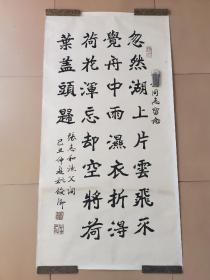 同志留念
忽然湖上片雲飛不
覺舟中雨濕衣折得
荷花渾忘却空將荷
葉蓋頭歸
張志和漁父詞
己丑仲夏